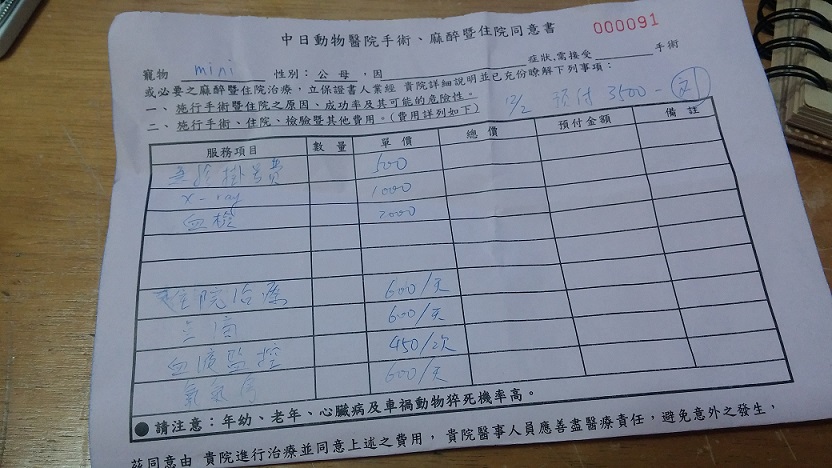 中日動物醫院手術、麻醉暨住院同意書 000091
寵物 mini 性別：公 母，因 症狀，需接受 手術
或必要之麻醉住院治療，立保證書人業經 貴院詳細說明並已充份瞭解下列事項：
一、施行手術暨住院之原因、成功率及其可能的危險性。
二、施行手術、住院、檢驗暨其他費用。(費用詳列如下) 12/2 預付 3500-
服務項目 數量 單價 總價 預付金額 備註
急診掛號費 500
x-ray 1000
血檢 2000
住院治療 600/天
600/天
血液監控 450/次
氧氣 600/天
●請注意：年幼、老年、心臟病及車禍動物猝死機率高。
茲同意由 貴院進行治療並同意上述之費用，貴院醫事人員應善盡醫療責任，避免意外之發生，